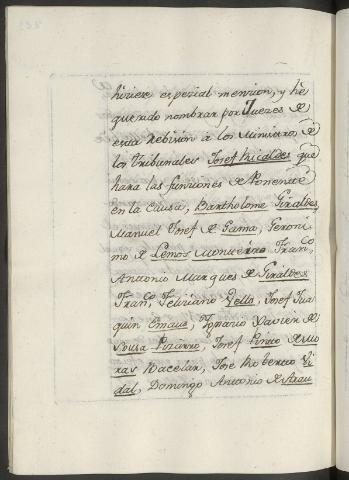 hiziere espezial mension, y he
querido nombrar por Juezes de
esta Rebision à los Ministros de
los Tribunales Josef Ricaldes que
hara las funciones de Ponente
en la Causa, Bartholome Giraldes,
Manuel Josef de Gama, Geroni-
mo de Lemos Monteiro Fran.co
Antonio Marques de Giraldes
Fran.co Feliziano Vello, Josef Jua
quin Emaus, Ygnacio Xavier de
Sousa Pizarro, Josef Pinto de Mo
ras Bacelar, Jose Roberto Vi
dal, Domingo Antonio de Arau